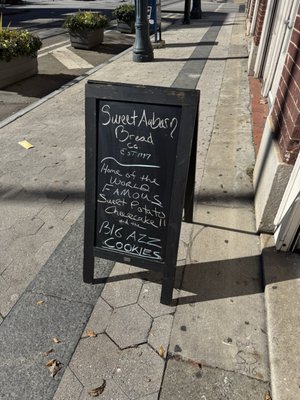 Sweet Auburn
Bread
Co
EST 1997
Home of the
WORLD
FAMOUS
Sweet Potato
Cheesecake!!
and the
BIG AZZ
COOKIES